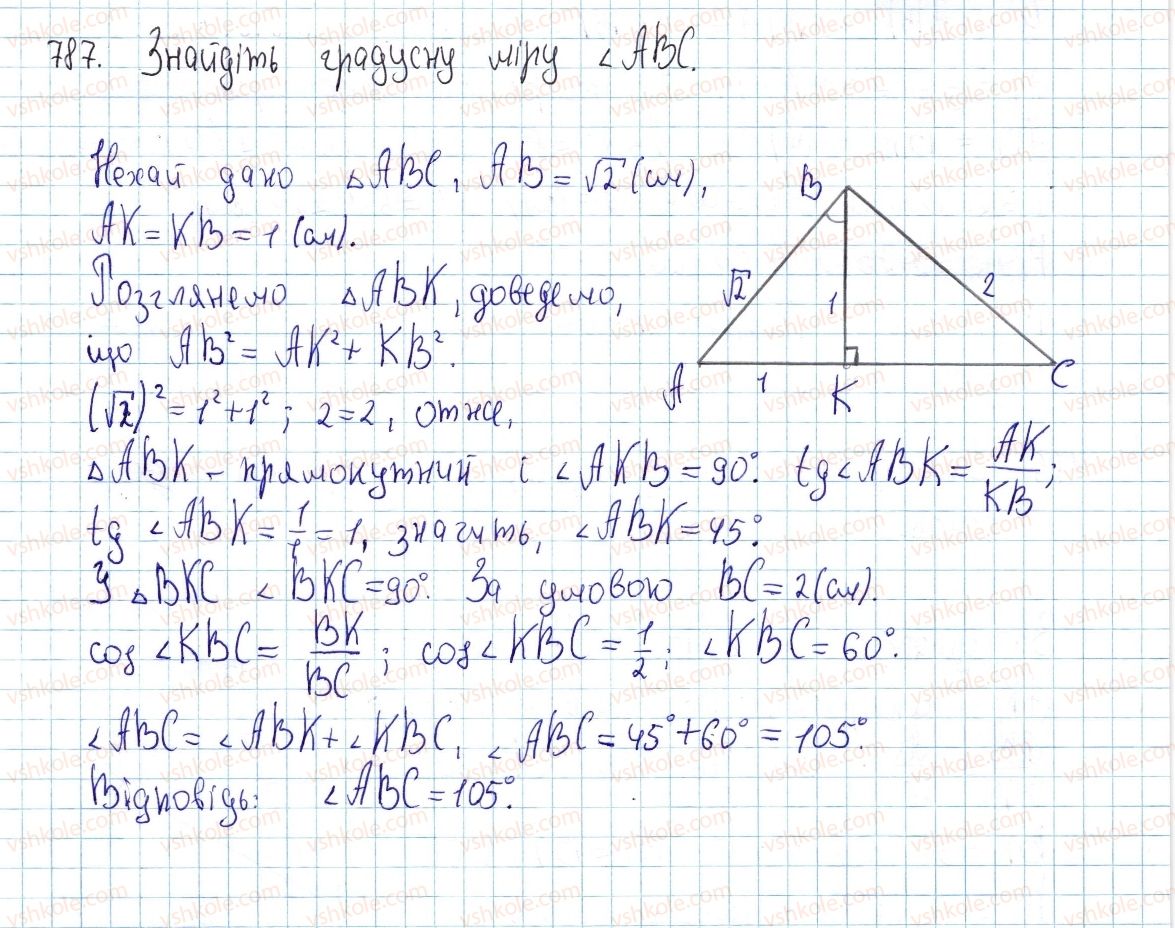 787. Знайдіть градусну міру ∠ABC.
Нехай дано △ABC, AB = √2 (см),
AK = KB = 1 (см).
Розглянемо △ABK, доведемо,
що AB² = AK² + KB².
(√2)² = 1² + 1²; 2 = 2, отже,
△ABK – прямокутний і ∠AKB = 90°. tg∠ABK = AK/KB;
tg ∠ABK = 1/1 = 1, значить, ∠ABK = 45°.
З △BKC ∠BKC = 90°. За умовою BC = 2 (см).
cos ∠KBC = BK/BC; cos∠KBC = 1/2; ∠KBC = 60°.
∠ABC = ∠ABK + ∠KBC, ∠ABC = 45° + 60° = 105°.
Відповідь: ∠ABC = 105°.
B
√2
1
2
A
1
K
C
vshkole.com